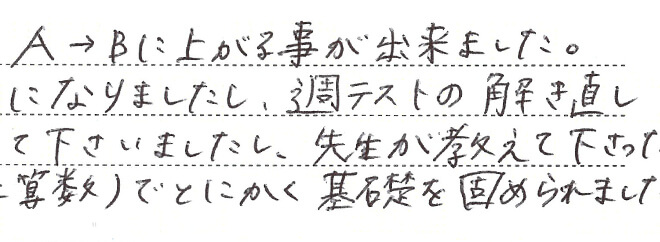 A→Bに上がる事が出来ました。
になりましたし、週テストの解き直し
て下さいましたし、先生が教えて下さった
算数)でとにかく基礎を固められました